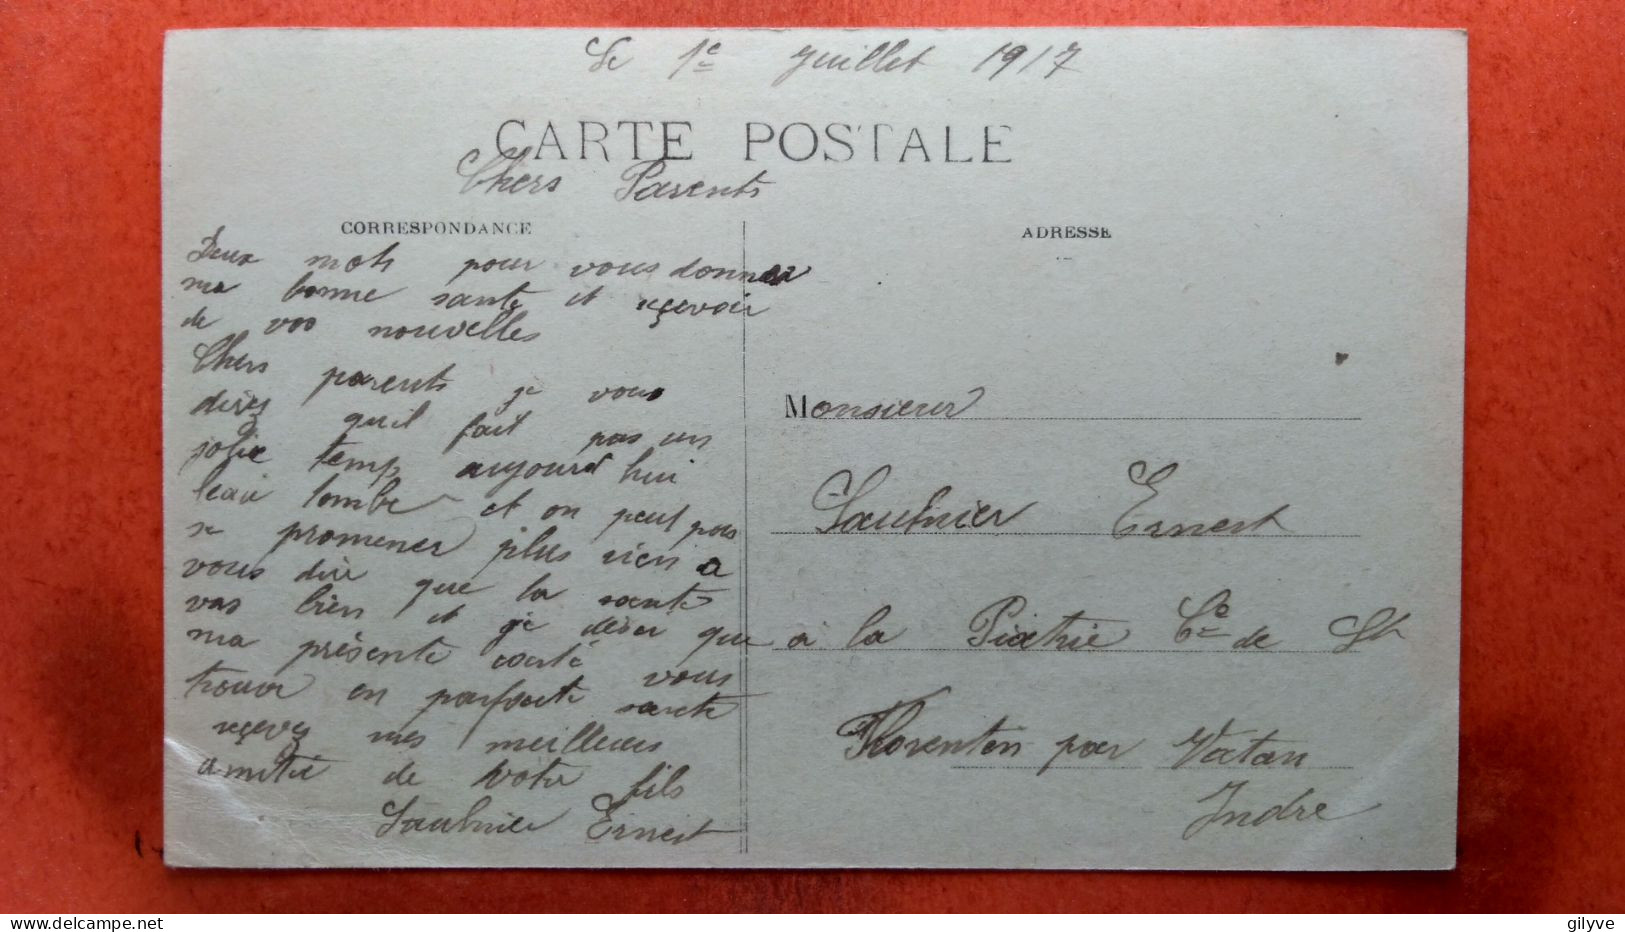 Le 1e Juillet 1917
CARTE POSTALE
Chers Parents
CORRESPONDANCE
Deux mots pour vous donner
ma bonne sante et reçevoir
de vos nouvelles
Chers parents je vous
direz quil fait pas un
jolie temp aujourd hui
leau tombe et on peut pas
se promener plus rien a
vous dire que la sante
vas bien et je désir que
ma présente carte vous
trouve en parfaite sante
reçevez mes meilleurs
amitié de votre fils
Saulnier Ernest
ADRESSE
Monsieur
Saulnier Ernest
à la Piathie Ce de St
Florentin par Vatan
Indre
gilyve